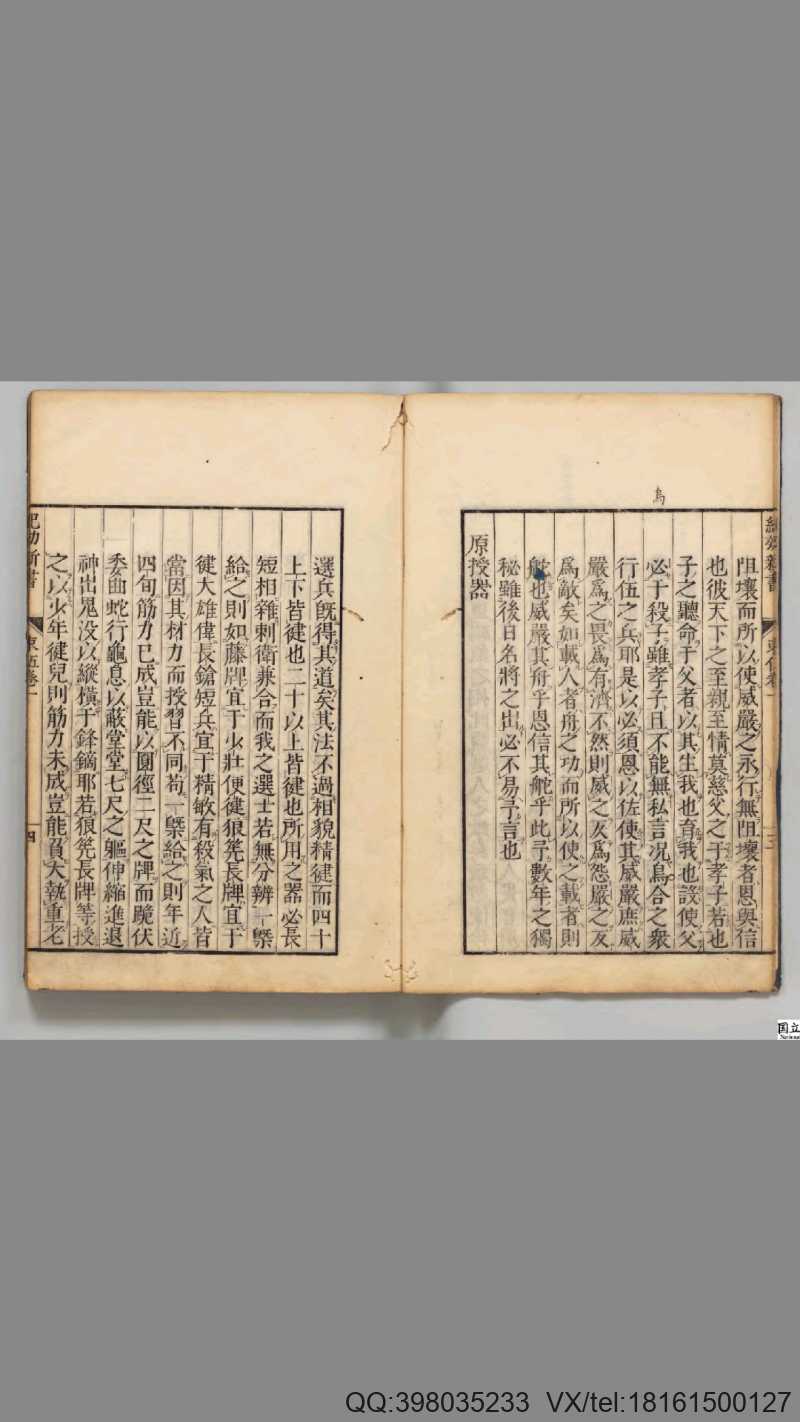 阻壞而所以使威嚴之永行無阻壞者恩與信
也彼天下之至親至情莫慈父之于孝子若也
子之聽命于父者以其生我也育我也設使父
必于殺子雖孝子且不能無私言况鳥合之衆
烏
行伍之兵耶是以必須恩以佐使其威嚴庶威
嚴爲之畏爲有濟不然則威之反爲怨嚴之反
爲敵矣如載人者舟之功而所以使之載者則
舵也威嚴其舟乎恩信其舵乎此予數年之獨
秘雖後日名將之出必不易予言也
原授器
選兵旣得其道矣其法不過相貌精健而四十
上下皆健也二十以上皆健也所用之器必長
短相雜刺衛兼合而我之選士若無分辨一槩
給之則如藤牌宜于少壯便健狼筅長牌宜于
健大雄偉長鎗短兵宜于精敏有殺氣之人皆
當因其材力而授習不同苟一槩給之則年近
四旬筋力已成豈能以圓徑二尺之牌而跪伏
委曲蛇行龜息以蔽堂堂七尺之軀伸縮進退
神出鬼没以縱橫于鋒鏑耶若狼筅長牌等授
之以少年健兒則筋力未成豈能負大執重老
紀効新書
束伍卷一
四
国立
QQ:398035233 VX/tel:18161500127